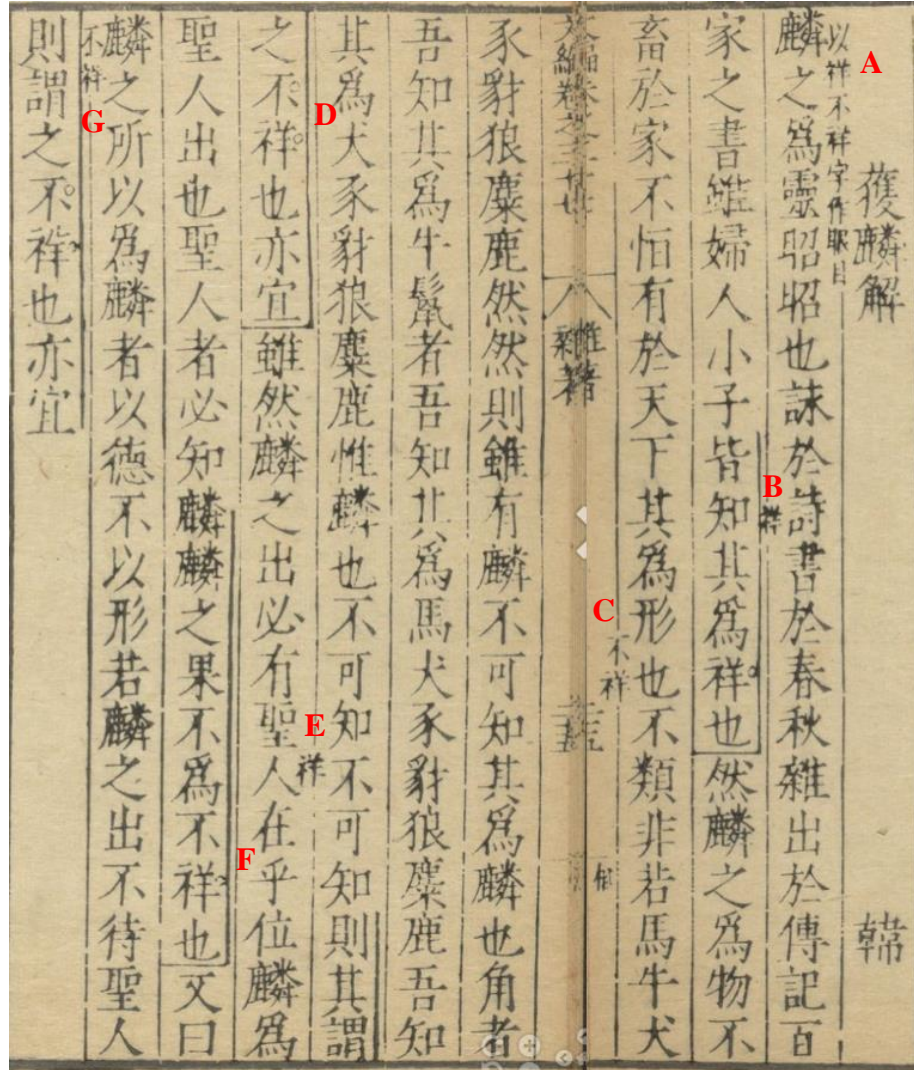 A
獲麟解 韓
以祥不祥字作眼目
麟之爲靈昭昭也詠於詩書於春秋雜出於傳記百
B
祥
家之書雖婦人小子皆知其爲祥也然麟之爲物不
畜於家不恒有於天下其爲形也不類非若馬牛犬
C
不祥
八
雜著
豕豺狼麋鹿然然則雖有麟不可知其爲麟也角者
吾知其爲牛鬣者吾知其爲馬犬豕豺狼麋鹿吾知
其爲犬豕豺狼麋鹿惟麟也不可知不可知則其謂
D
E
祥
之不祥也亦宜雖然麟之出必有聖人在乎位麟爲
F
聖人出也聖人者必知麟麟之果不爲不祥也又曰
G
不祥
麟之所以爲麟者以德不以形若麟之出不待聖人
則謂之不祥也亦宜